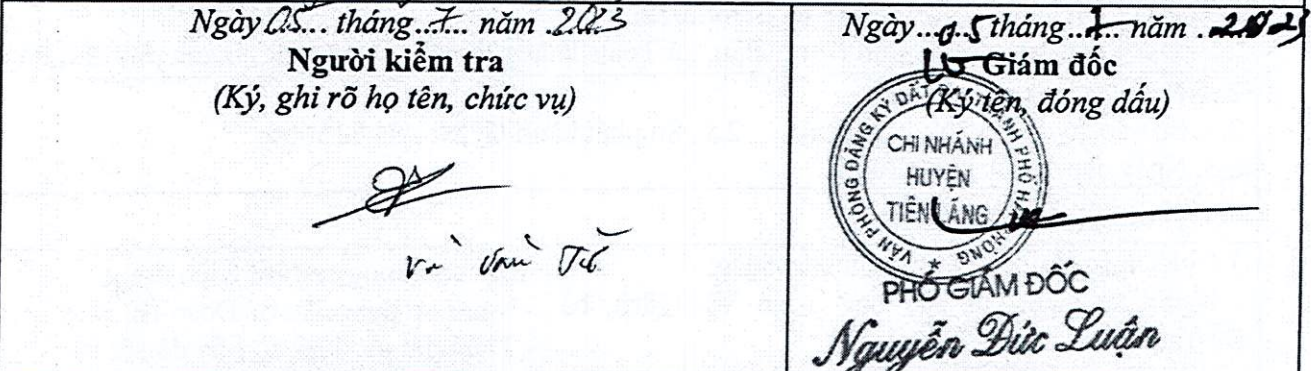 Ngày 05... tháng ..7... năm .2023
Người kiểm tra
(Ký, ghi rõ họ tên, chức vụ)
Ngày ...05 tháng ..7... năm .2023
Giám đốc
(Ký tên, đóng dấu)
VĂN PHÒNG ĐĂNG KÝ ĐẤT ĐAI THÀNH PHỐ HẢI PHÒNG
CHI NHÁNH
HUYỆN
TIÊN LÃNG
PHÓ GIÁM ĐỐC
Nguyễn Đức Luận